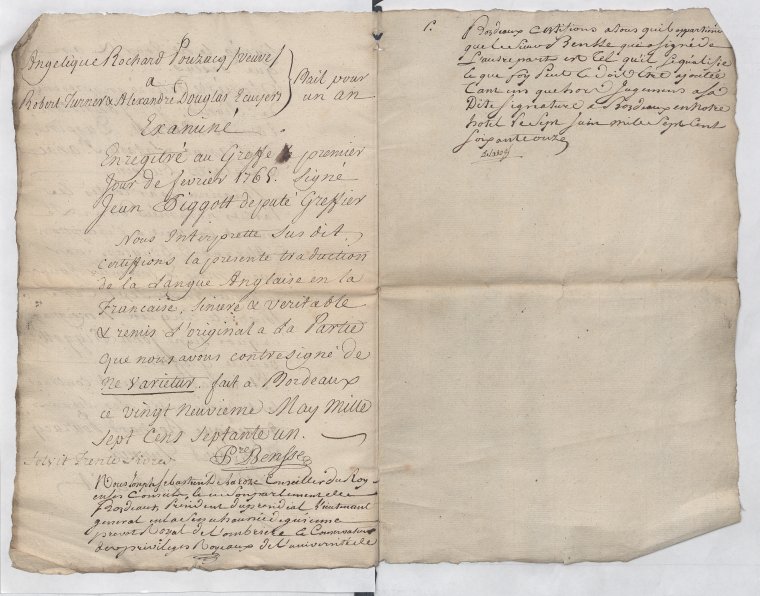 Angelique Rochard Pouzacq (veuve)
a
Robert Turner & Alexandre Douglas Ecuyers
Bail pour
un an
Examiné
Enregitré au Greffe le premier
Jour de fevrier 1765. Signé
Jean Piggott deputé Greffier
Nous Interprette Susdit,
certiffions la presente traduction
de la Langue Anglaise en la
Francaise, sincere & veritable
& remis l'original a la Partie
que nous avons contresigné de
Ne Varietur. fait a Bordeaux
ce vingt neuvieme May mille
sept cens septante un.
Solvit trente Livres
Pre Bensse
Nous Joseph Sebastien De Laroze Conseiller du Roy
en ses Conseils, en son parlement de
Bordeaux President du presidial Lieutenant
general en la Senechaussée de guienne
prevot Royal de l'ombriere Conservateur
des privileges Royaux de l'université de
Bordeaux Certifions a tous qu'il appartiendra
que le sieur Bensse qui a signé de
L'autre part est tel qu'il se qualifie
et que foy peut et Doit etre ajoutée
tant en que hors Jugement a sa
Dite signature a Bordeaux en notre
hotel Le Sept Juin mille Sept Cent
Soixante onze